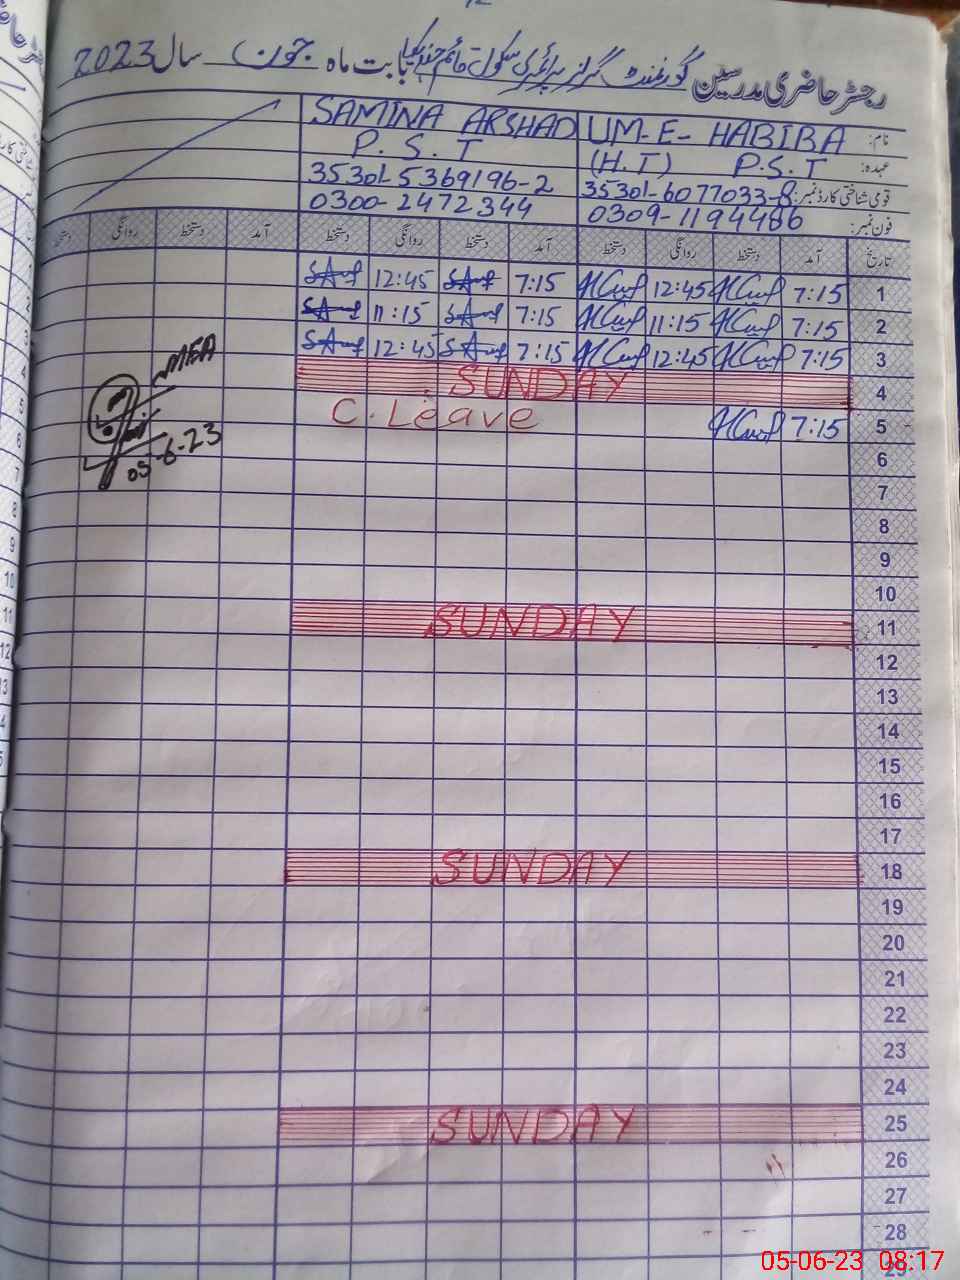 رجسٹر حاضری مدرسین گورنمنٹ گرلز پرائمری سکول قائم بابت ماہ جون سال 2023
نام: UM-E- HABIBA SAMINA ARSHAD
عہدہ: (H.T) P.S.T P.S.T
قومی شناختی کارڈ نمبر: 35301-6077033-8 35301-5369196-2
فون نمبر: 0309-1194486 0300-2472344
تاریخ آمد دستخط روانگی دستخط آمد دستخط روانگی دستخط آمد دستخط روانگی دستخط
1 7:15 12:45 7:15 12:45
2 7:15 11:15 7:15 11:15
3 7:15 12:45 7:15 12:45
MEA
4 SUNDAY
5 7:15 C. Leave
05-6-23
6
7
8
9
10
11 SUNDAY
12
13
14
15
16
17
18 SUNDAY
19
20
21
22
23
24
25 SUNDAY
26
27
28
29
05-06-23 08:17